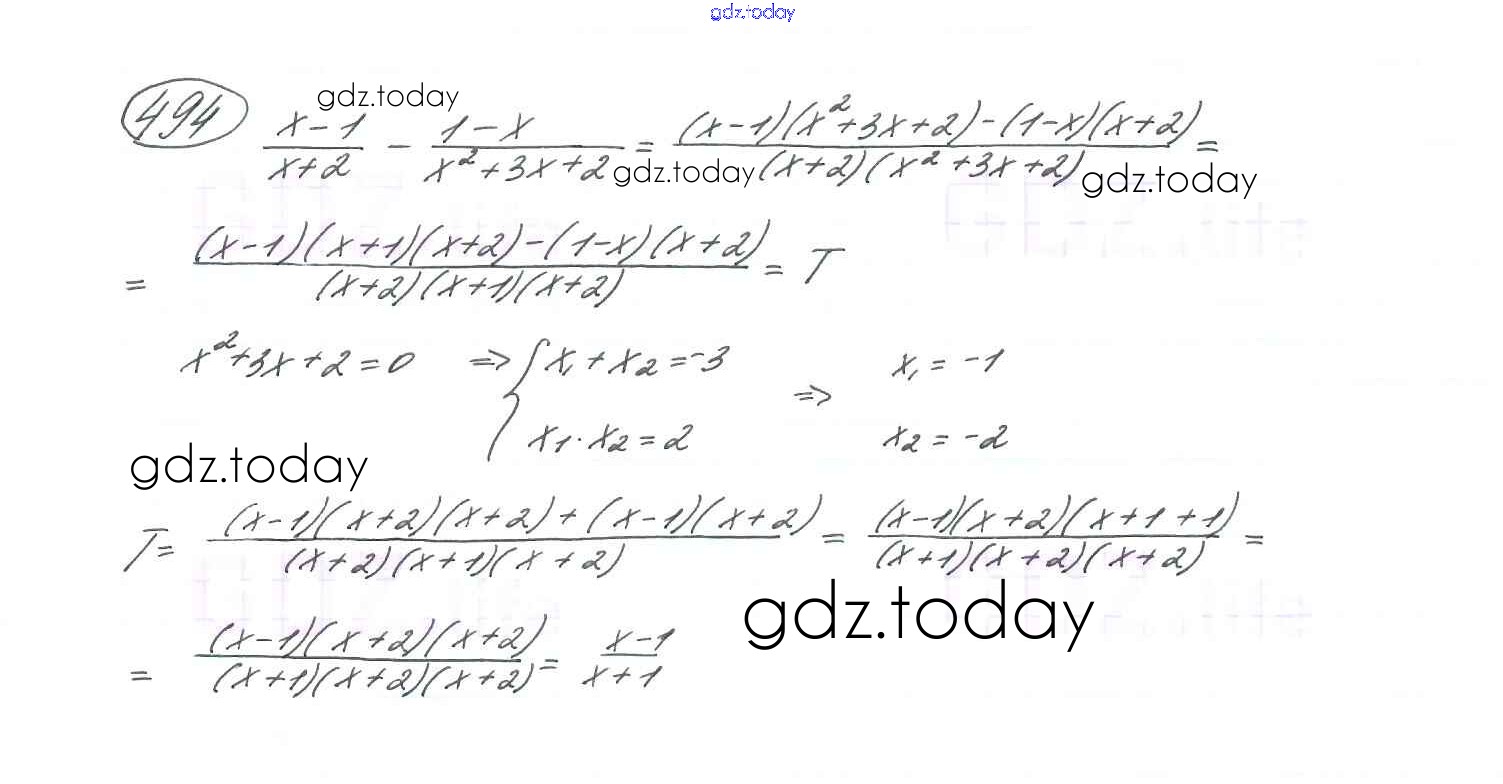 gdz.today
494 gdz.today
(x-1)/(x+2) - (1-x)/(x²+3x+2) = ((x-1)(x²+3x+2)-(1-x)(x+2))/((x+2)(x²+3x+2)) =
gdz.today gdz.today
= ((x-1)(x+1)(x+2)-(1-x)(x+2))/((x+2)(x+1)(x+2)) = T
x²+3x+2=0 => { x₁+x₂=-3 => x₁=-1
x₁·x₂=2 x₂=-2
gdz.today
T= ((x-1)(x+2)(x+2)+(x-1)(x+2))/((x+2)(x+1)(x+2)) = ((x-1)(x+2)(x+1+1))/((x+1)(x+2)(x+2)) =
gdz.today
= ((x-1)(x+2)(x+2))/((x+1)(x+2)(x+2)) = (x-1)/(x+1)